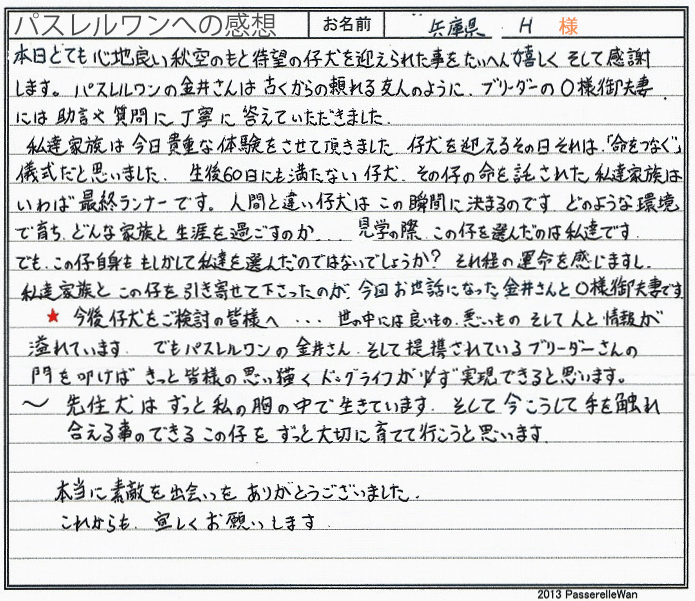 パスレルワンへの感想 お名前 兵庫県 H 様
本日とても心地良い秋空のもと待望の仔犬を迎えられた事をたいへん嬉しく そして感謝
します。パスレルワンの金井さんは古くからの頼れる友人のように、ブリーダーのO様御夫妻
には助言や質問に丁寧に答えていただきました。
私達家族は今日貴重な体験をさせて頂きました。仔犬を迎えるその日それは、「命をつなぐ」
儀式だと思いました。生後60日にも満たない仔犬、その仔の命を託された私達家族は
いわば最終ランナーです。人間と違い仔犬はこの瞬間に決まるのです。どのような環境
で育ち、どんな家族と生涯を過ごすのか... 見学の際、この仔を選んだのは私達です。
でも、この仔自身ももしかして私達を選んだのではないでしょうか? それ程の運命を感じますし、
私達家族とこの仔を引き寄せて下さったのが、今回お世話になった金井さんとO様御夫妻です
★ 今後仔犬をご検討の皆様へ ... 世の中には良いもの、悪いもの そして人と情報が
溢れています。でもパスレルワンの金井さん、そして提携されているブリーダーさんの
門を叩けばきっと皆様の思い描くドッグライフが必ず実現できると思います。
〜 先住犬はずっと私の胸の中で生きています。そして今こうして手を触れ
合える事のできるこの仔をずっと大切に育てて行こうと思います。
本当に素敵を出会いを ありがとうございました。
これからも、宜しくお願いします。
2013 PasserelleWan